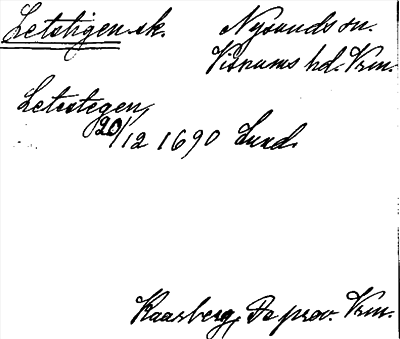 Letstigen sk. Nysunds sn.
Visnums hd. Vrm.
Letestegen
20/12 1690 Lund
Kaarberg, De prov. Vrm.